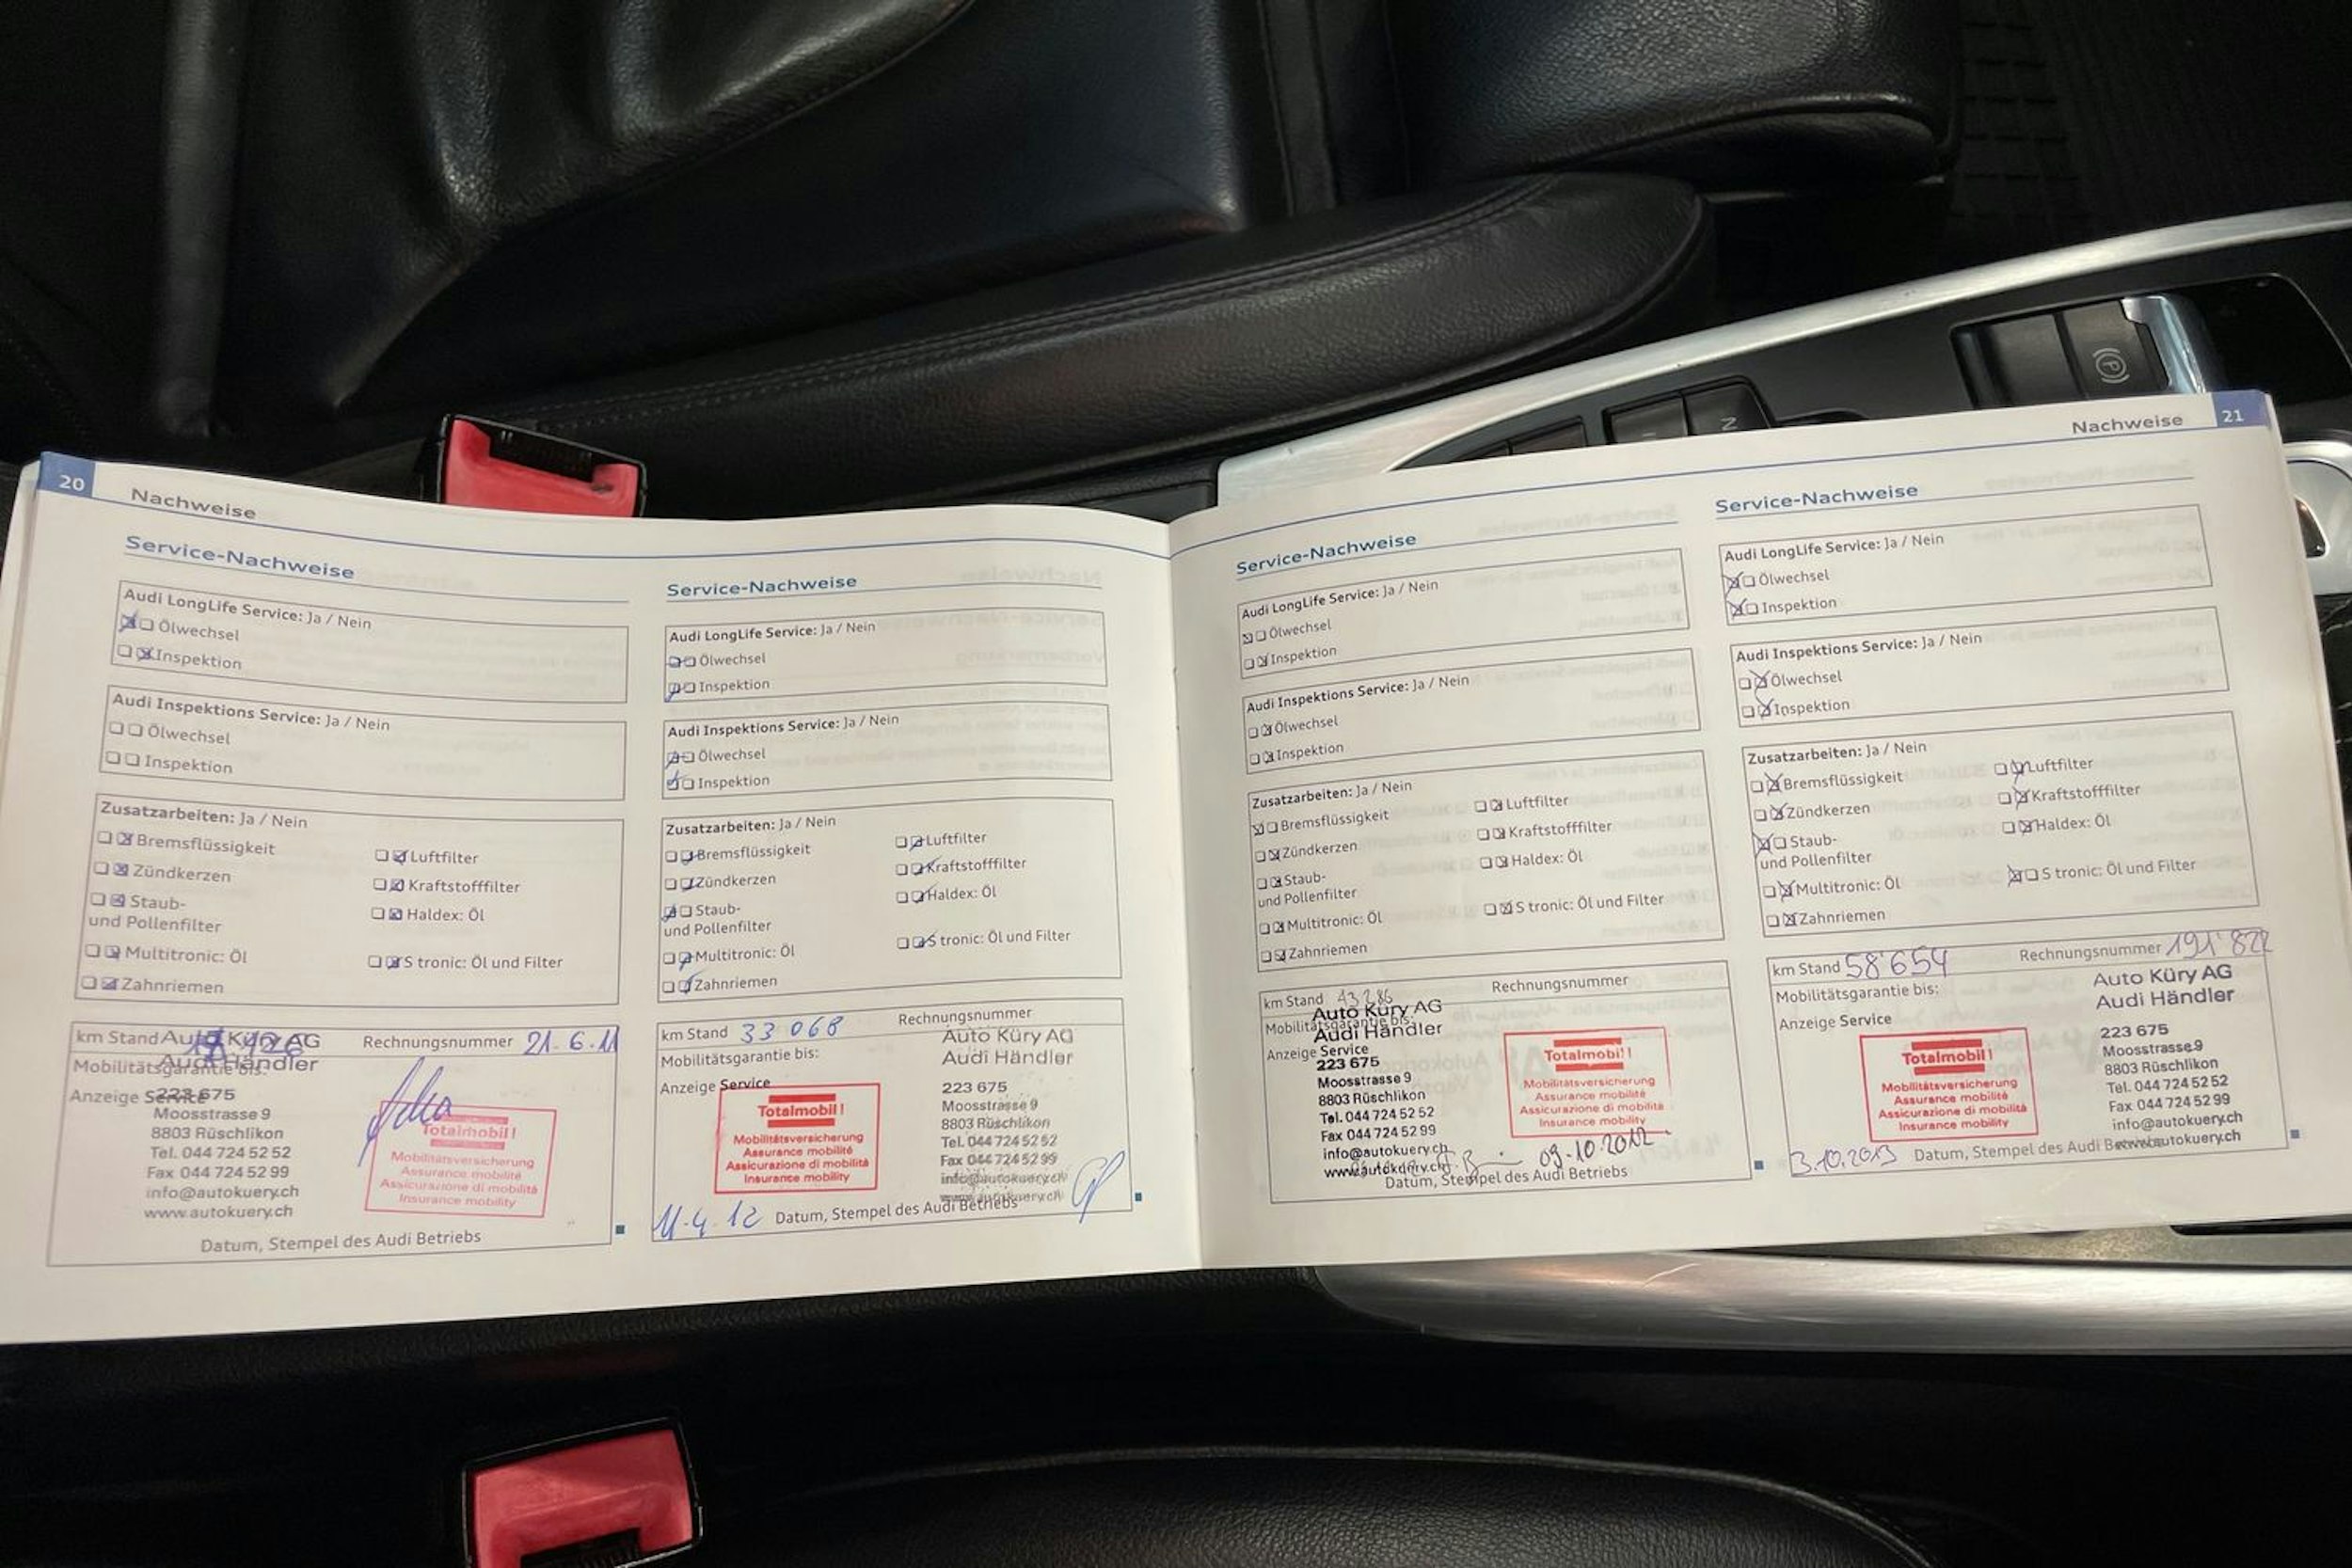 20 Nachweise
Service-Nachweise
Audi LongLife Service: Ja / Nein
Ölwechsel
Inspektion
Audi Inspektions Service: Ja / Nein
Ölwechsel
Inspektion
Zusatzarbeiten: Ja / Nein
Bremsflüssigkeit
Zündkerzen
Staub-
und Pollenfilter
Multitronic: Öl
Zahnriemen
Luftfilter
Kraftstofffilter
Haldex: Öl
S tronic: Öl und Filter
km Stand
Rechnungsnummer 21.6.11
Mobilitätsgarantie bis:
Anzeige Service
Auto Küry AG
Audi Händler
223 675
Moosstrasse 9
8803 Rüschlikon
Tel. 044 724 52 52
Fax 044 724 52 99
info@autokuery.ch
www.autokuery.ch
Totalmobil!
Mobilitätsversicherung
Assurance mobilité
Assicurazione di mobilità
Insurance mobility
Datum, Stempel des Audi Betriebs
Service-Nachweise
Audi LongLife Service: Ja / Nein
Ölwechsel
Inspektion
Audi Inspektions Service: Ja / Nein
Ölwechsel
Inspektion
Zusatzarbeiten: Ja / Nein
Bremsflüssigkeit
Zündkerzen
Staub-
und Pollenfilter
Multitronic: Öl
Zahnriemen
Luftfilter
Kraftstofffilter
Haldex: Öl
S tronic: Öl und Filter
km Stand 33 068
Rechnungsnummer
Mobilitätsgarantie bis:
Anzeige Service
Totalmobil!
Mobilitätsversicherung
Assurance mobilité
Assicurazione di mobilità
Insurance mobility
Auto Küry AG
Audi Händler
223 675
Moosstrasse 9
8803 Rüschlikon
Tel. 044 724 52 52
Fax 044 724 52 99
info@autokuery.ch
www.autokuery.ch
11.4.12 Datum, Stempel des Audi Betriebs
Nachweise 21
Service-Nachweise
Audi LongLife Service: Ja / Nein
Ölwechsel
Inspektion
Audi Inspektions Service: Ja / Nein
Ölwechsel
Inspektion
Zusatzarbeiten: Ja / Nein
Bremsflüssigkeit
Zündkerzen
Staub-
und Pollenfilter
Multitronic: Öl
Zahnriemen
Luftfilter
Kraftstofffilter
Haldex: Öl
S tronic: Öl und Filter
km Stand 43 286
Rechnungsnummer
Mobilitätsgarantie bis:
Anzeige Service
Auto Küry AG
Audi Händler
223 675
Moosstrasse 9
8803 Rüschlikon
Tel. 044 724 52 52
Fax 044 724 52 99
info@autokuery.ch
www.autokuery.ch
Totalmobil!
Mobilitätsversicherung
Assurance mobilité
Assicurazione di mobilità
Insurance mobility
09.10.2012
Datum, Stempel des Audi Betriebs
Service-Nachweise
Audi LongLife Service: Ja / Nein
Ölwechsel
Inspektion
Audi Inspektions Service: Ja / Nein
Ölwechsel
Inspektion
Zusatzarbeiten: Ja / Nein
Bremsflüssigkeit
Zündkerzen
Staub-
und Pollenfilter
Multitronic: Öl
Zahnriemen
Luftfilter
Kraftstofffilter
Haldex: Öl
S tronic: Öl und Filter
km Stand 58'654
Rechnungsnummer 191'822
Mobilitätsgarantie bis:
Anzeige Service
Totalmobil!
Mobilitätsversicherung
Assurance mobilité
Assicurazione di mobilità
Insurance mobility
Auto Küry AG
Audi Händler
223 675
Moosstrasse 9
8803 Rüschlikon
Tel. 044 724 52 52
Fax 044 724 52 99
info@autokuery.ch
www.autokuery.ch
3.10.2013 Datum, Stempel des Audi Betriebs